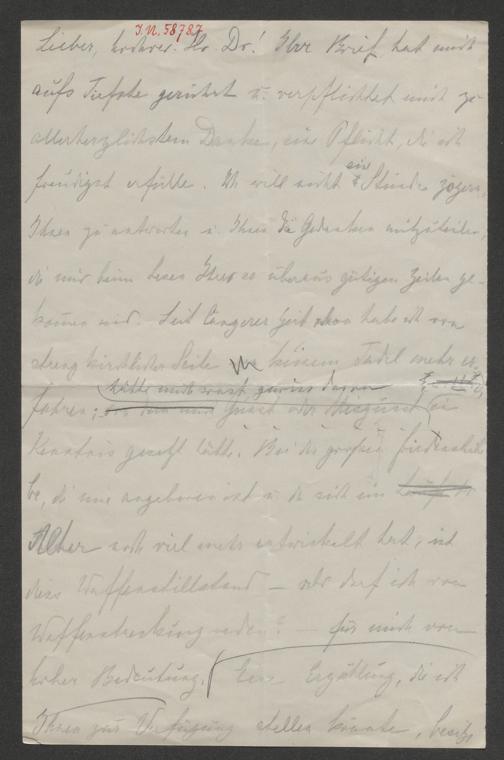 I.N. 58787
Lieber, verehrter Hr Dr! Ihr Brief hat mich
aufs Tiefste gerührt u. verpflichtet mich zu
allerherzlichstem Danke, eine Pflicht, die ich
freudigst erfülle. Ich will nicht eine Stunde zögern,
Ihnen zu antworten u. Ihnen die Gedanken mitzuteilen,
die mir beim Lesen Ihrer so überaus gütigen Zeilen ge-
kommen sind. Seit längerer Zeit schon habe ich von
streng kirchlicher Seite keinen Tadel mehr er-
hätte mich sonst gewiss davon
fahren; Gunst oder Missgunst in
Kenntnis gesetzt hätte. Bei der großen Friedensliebe,
die mir angeboren ist u. die sich im
Alter noch viel mehr entwickelt hat, ist
dieser Waffenstillstand – oder darf ich von
Waffenstreckung reden? – für mich von
hoher Bedeutung. Eine Erzählung, die ich
Ihnen zur Verfügung stellen könnte, besitze